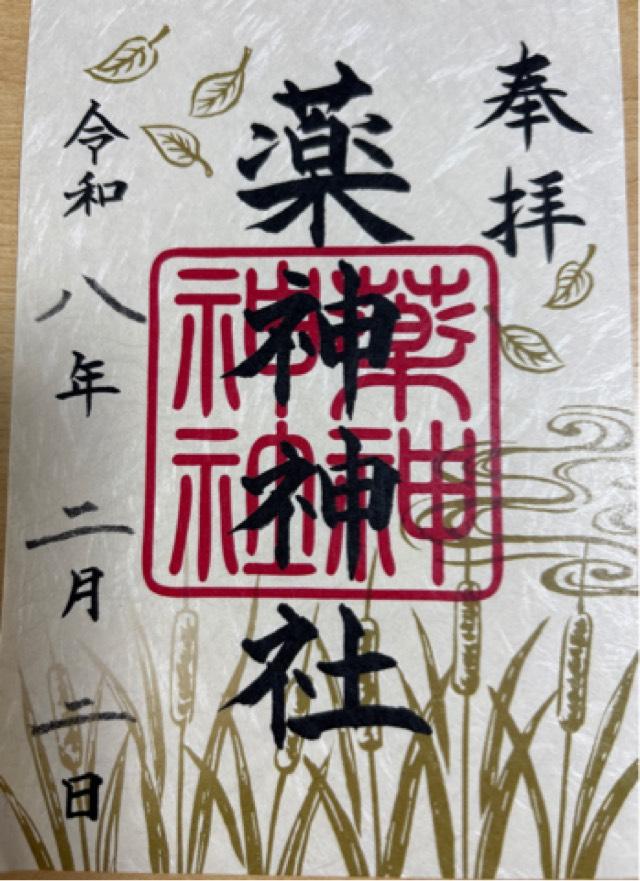 奉拝
薬神神社
薬神
神社
令和八年二月二日